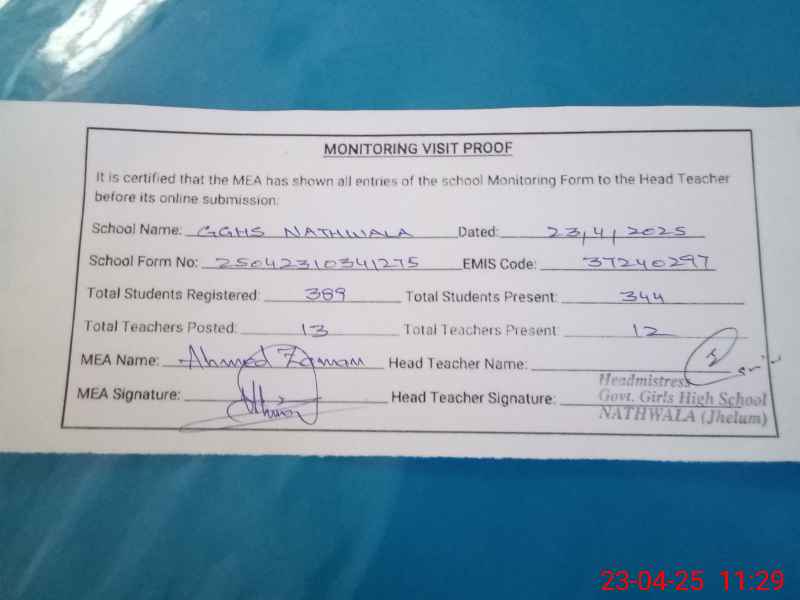 MONITORING VISIT PROOF
It is certified that the MEA has shown all entries of the school Monitoring Form to the Head Teacher
before its online submission:
School Name: GGHS NATHWALA Dated: 23/4/2025
School Form No: 25042310341275 EMIS Code: 37240297
Total Students Registered: 389 Total Students Present: 344
Total Teachers Posted: 13 Total Teachers Present: 12
MEA Name: Ahmed Zaman Head Teacher Name:
MEA Signature: Head Teacher Signature:
Headmistress
Govt. Girls High School
NATHWALA (Jhelum)
23-04-25 11:29